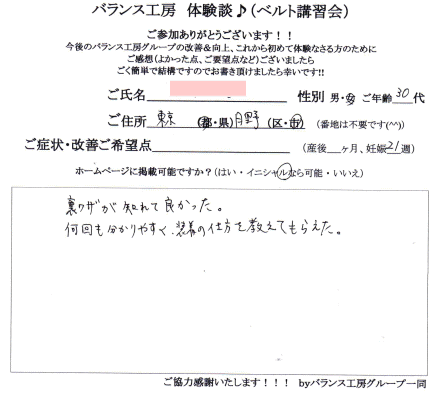 バランス工房 体験談♪（ベルト講習会）
ご参加ありがとうございます！！
今後のバランス工房グループの改善＆向上、これから初めて体験なさる方のために
ご感想（よかった点、ご要望点など）ございましたら
ごく簡単で結構ですのでお書き頂けましたら幸いです!!
ご氏名 性別 男・女 ご年齢 30 代
ご住所 東京 (都・県) 日野 (区・市) (番地は不要です(^^))
ご症状・改善ご希望点 (産後 ヶ月、妊娠 21 週)
ホームページに掲載可能ですか？（はい・イニシャルなら可能・いいえ）
裏ワザが知れて良かった。
何回も分かりやすく、装着の仕方を教えてもらえた。
ご協力感謝いたします！！！ byバランス工房グループ一同